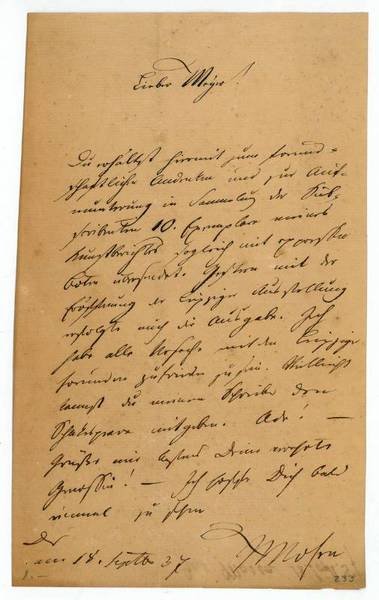 Lieber Meyer!
Du erhältst hiermit zum freund=
schaftlichen Andenken und zur Auf=
munterung in Sammlung der Sub=
skribenten 10. Exemplare meines
Kunstberichtes sogleich mit expressen
Boten übersendet. Gestern mit der
Eröffnung der Leipziger Ausstellung
erfolgte auch die Ausgabe. Ich
habe alle Ursache mit den Leipziger
Freunden zufrieden zu sein. Vielleicht
kannst du meinem Schreiben den
Shakespeare mitgeben. Ade! —
Grüße mir bestens Deine verehrte
Gemahlin! — Ich hoffe Dich bald
einmal zu sehen
D
am 18. Septbr 37
JMosen
233